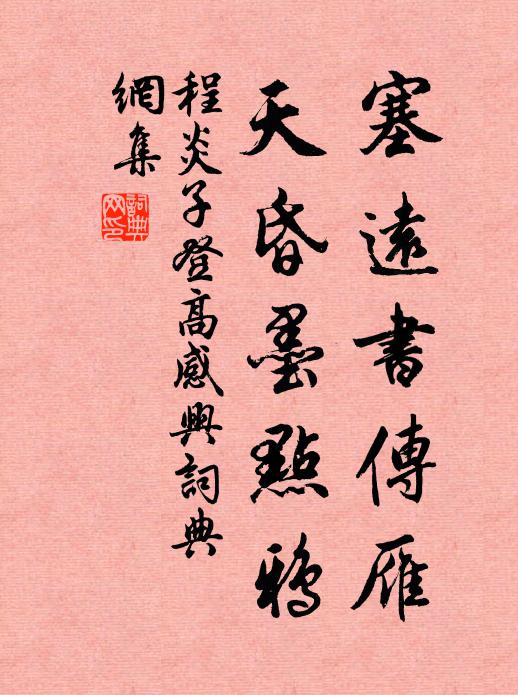 塞遠書傳雁
天昏墨點鴉
程炎子登高感興詞典
網集
詞典網印